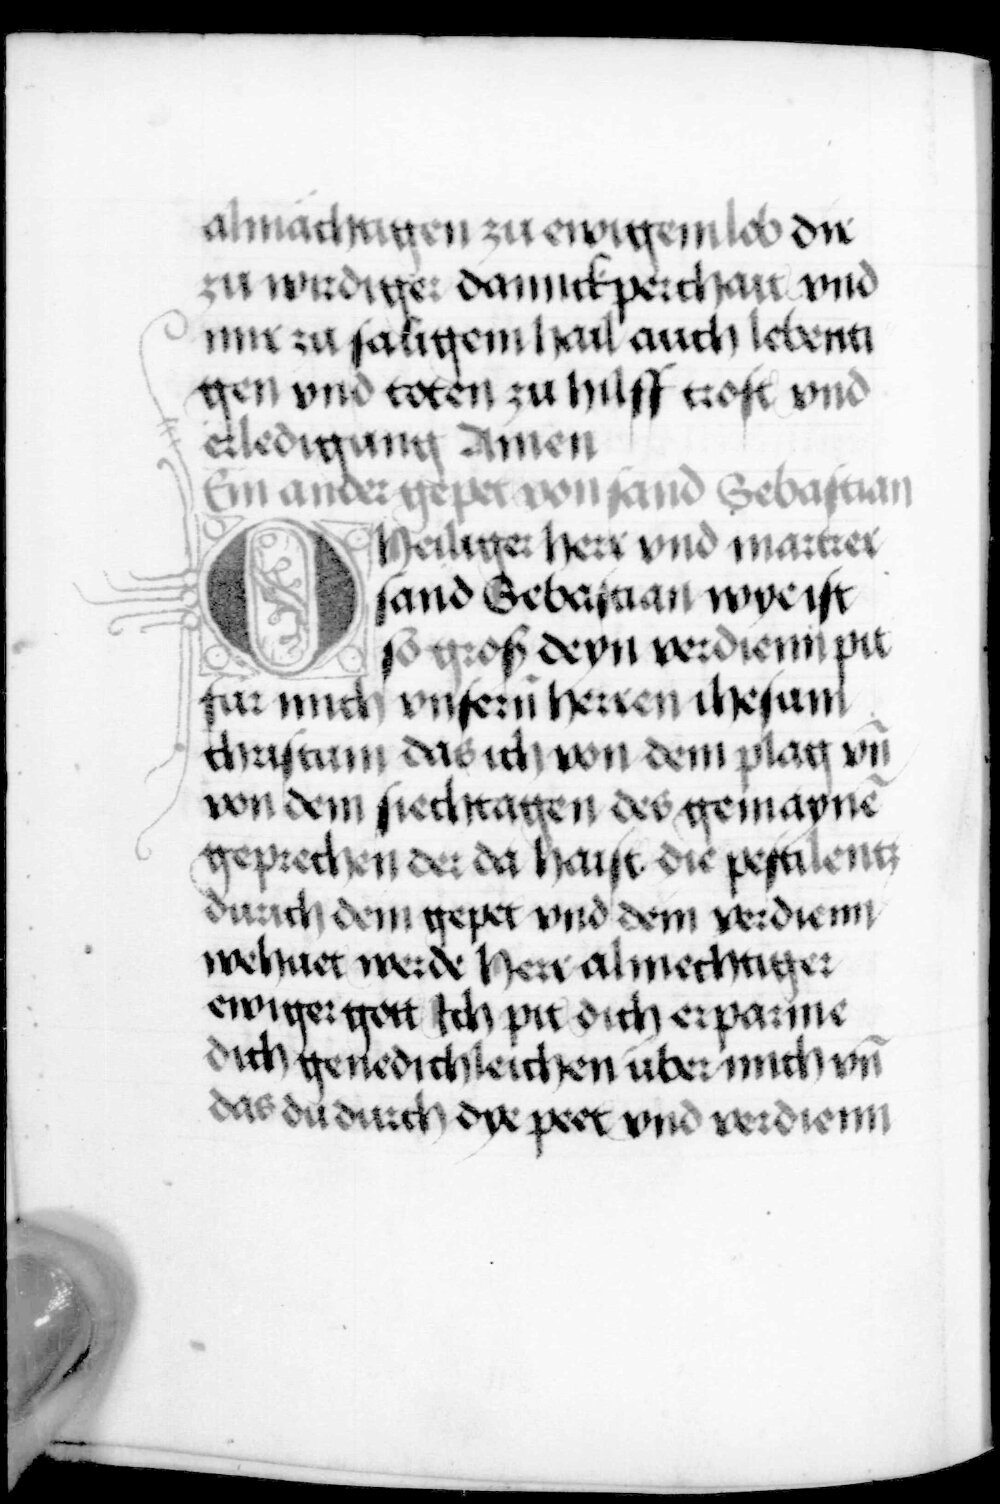 almächtigen zu ewigem lob dir
zu wirdiger dannckperchait vnd
mir zu säligem hail auch lebenti
gen vnd toten zu hilff trost vnd
erledigung Amen
Ein ander gepet von sand Sebastian
O Heiliger herr vnd martrer
sand Sebastian wye ist
so groß deyn verdienn pit
für mich vnsern̄ herren ihesum
christum das ich von dem plag vn̄
von dem siechtagen des gemaynē
geprechen der da haist die pestilentz
durich dein gepet vnd dein verdienn
wehuet werde Herr almechtiger
ewiger gott Ich pit dich erparme
dich genedichleichen über mich vn̄
das du durch dye peet vnd verdienn